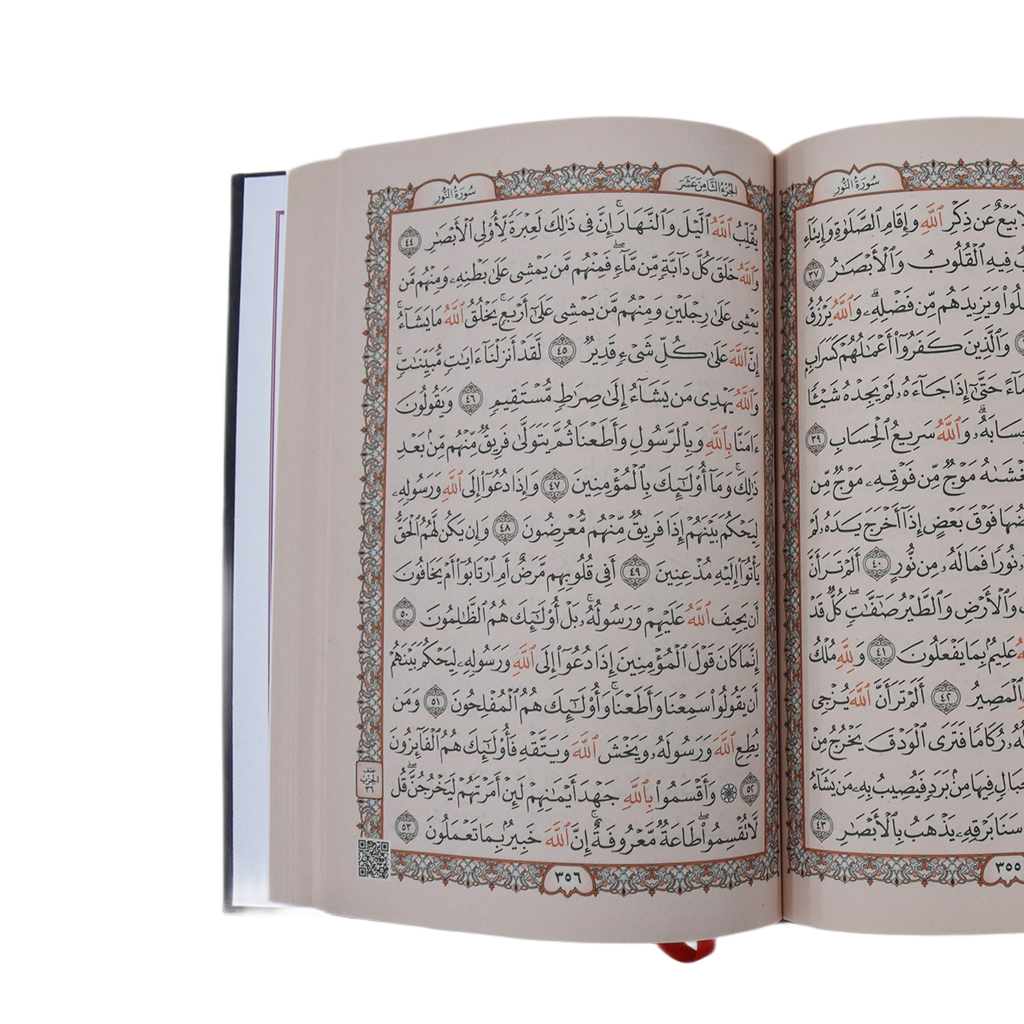 سُورَةُ النُّورِ
بَيْعٌ عَن ذِكْرِ ٱللَّهِ وَإِقَامِ ٱلصَّلَوٰةِ وَإِيتَآءِ
فِيهِ ٱلْقُلُوبُ وَٱلْأَبْصَٰرُ ٣٧
وَيَزِيدَهُم مِّن فَضْلِهِۦ ۗ وَٱللَّهُ يَرْزُقُ
وَٱلَّذِينَ كَفَرُوٓا۟ أَعْمَٰلُهُمْ كَسَرَابٍۭ
مَآءً حَتَّىٰٓ إِذَا جَآءَهُۥ لَمْ يَجِدْهُ شَيْـًٔا
وَٱللَّهُ سَرِيعُ ٱلْحِسَابِ ٣٩
مَوْجٌ مِّن فَوْقِهِۦ مَوْجٌ مِّن
فَوْقَ بَعْضٍ إِذَآ أَخْرَجَ يَدَهُۥ لَمْ
نُورًا فَمَا لَهُۥ مِن نُّورٍ ٤٠ أَلَمْ تَرَ أَنَّ
وَٱلْأَرْضِ وَٱلطَّيْرُ صَٰٓفَّٰتٍ ۖ كُلٌّ قَدْ
عَلِيمٌۢ بِمَا يَفْعَلُونَ ٤١ وَلِلَّهِ مُلْكُ
ٱلْمَصِيرُ ٤٢ أَلَمْ تَرَ أَنَّ ٱللَّهَ يُزْجِى
رُكَامًا فَتَرَى ٱلْوَدْقَ يَخْرُجُ مِنْ
جِبَالٍ فِيهَا مِنۢ بَرَدٍ فَيُصِيبُ بِهِۦ مَن يَشَآءُ
سَنَا بَرْقِهِۦ يَذْهَبُ بِٱلْأَبْصَٰرِ ٤٣
٣٥٥
الجُزْءُ الثَّامِنَ عَشَرَ
سُورَةُ النُّورِ
يُقَلِّبُ ٱللَّهُ ٱلَّيْلَ وَٱلنَّهَارَ ۚ إِنَّ فِى ذَٰلِكَ لَعِبْرَةً لِّأُو۟لِى ٱلْأَبْصَٰرِ ٤٤
وَٱللَّهُ خَلَقَ كُلَّ دَآبَّةٍ مِّن مَّآءٍ ۖ فَمِنْهُم مَّن يَمْشِى عَلَىٰ بَطْنِهِۦ وَمِنْهُم مَّن
يَمْشِى عَلَىٰ رِجْلَيْنِ وَمِنْهُم مَّن يَمْشِى عَلَىٰٓ أَرْبَعٍ ۚ يَخْلُقُ ٱللَّهُ مَا يَشَآءُ ۚ
إِنَّ ٱللَّهَ عَلَىٰ كُلِّ شَىْءٍ قَدِيرٌ ٤٥ لَّقَدْ أَنزَلْنَآ ءَايَٰتٍ مُّبَيِّنَٰتٍ ۚ
وَٱللَّهُ يَهْدِى مَن يَشَآءُ إِلَىٰ صِرَٰطٍ مُّسْتَقِيمٍ ٤٦ وَيَقُولُونَ
ءَامَنَّا بِٱللَّهِ وَبِٱلرَّسُولِ وَأَطَعْنَا ثُمَّ يَتَوَلَّىٰ فَرِيقٌ مِّنْهُم مِّنۢ بَعْدِ
ذَٰلِكَ ۚ وَمَآ أُو۟لَٰٓئِكَ بِٱلْمُؤْمِنِينَ ٤٧ وَإِذَا دُعُوٓا۟ إِلَى ٱللَّهِ وَرَسُولِهِۦ
لِيَحْكُمَ بَيْنَهُمْ إِذَا فَرِيقٌ مِّنْهُم مُّعْرِضُونَ ٤٨ وَإِن يَكُن لَّهُمُ ٱلْحَقُّ
يَأْتُوٓا۟ إِلَيْهِ مُذْعِنِينَ ٤٩ أَفِى قُلُوبِهِم مَّرَضٌ أَمِ ٱرْتَابُوٓا۟ أَمْ يَخَافُونَ
أَن يَحِيفَ ٱللَّهُ عَلَيْهِمْ وَرَسُولُهُۥ ۚ بَلْ أُو۟لَٰٓئِكَ هُمُ ٱلظَّٰلِمُونَ ٥٠
إِنَّمَا كَانَ قَوْلَ ٱلْمُؤْمِنِينَ إِذَا دُعُوٓا۟ إِلَى ٱللَّهِ وَرَسُولِهِۦ لِيَحْكُمَ بَيْنَهُمْ
أَن يَقُولُوا۟ سَمِعْنَا وَأَطَعْنَا ۚ وَأُو۟لَٰٓئِكَ هُمُ ٱلْمُفْلِحُونَ ٥١ وَمَن
يُطِعِ ٱللَّهَ وَرَسُولَهُۥ وَيَخْشَ ٱللَّهَ وَيَتَّقْهِ فَأُو۟لَٰٓئِكَ هُمُ ٱلْفَآئِزُونَ
٥٢ ۞ وَأَقْسَمُوا۟ بِٱللَّهِ جَهْدَ أَيْمَٰنِهِمْ لَئِنْ أَمَرْتَهُمْ لَيَخْرُجُنَّ ۖ قُل
لَّا تُقْسِمُوا۟ ۖ طَاعَةٌ مَّعْرُوفَةٌ ۚ إِنَّ ٱللَّهَ خَبِيرٌۢ بِمَا تَعْمَلُونَ ٥٣
نصف
الحزب
٣٦
٣٥٦